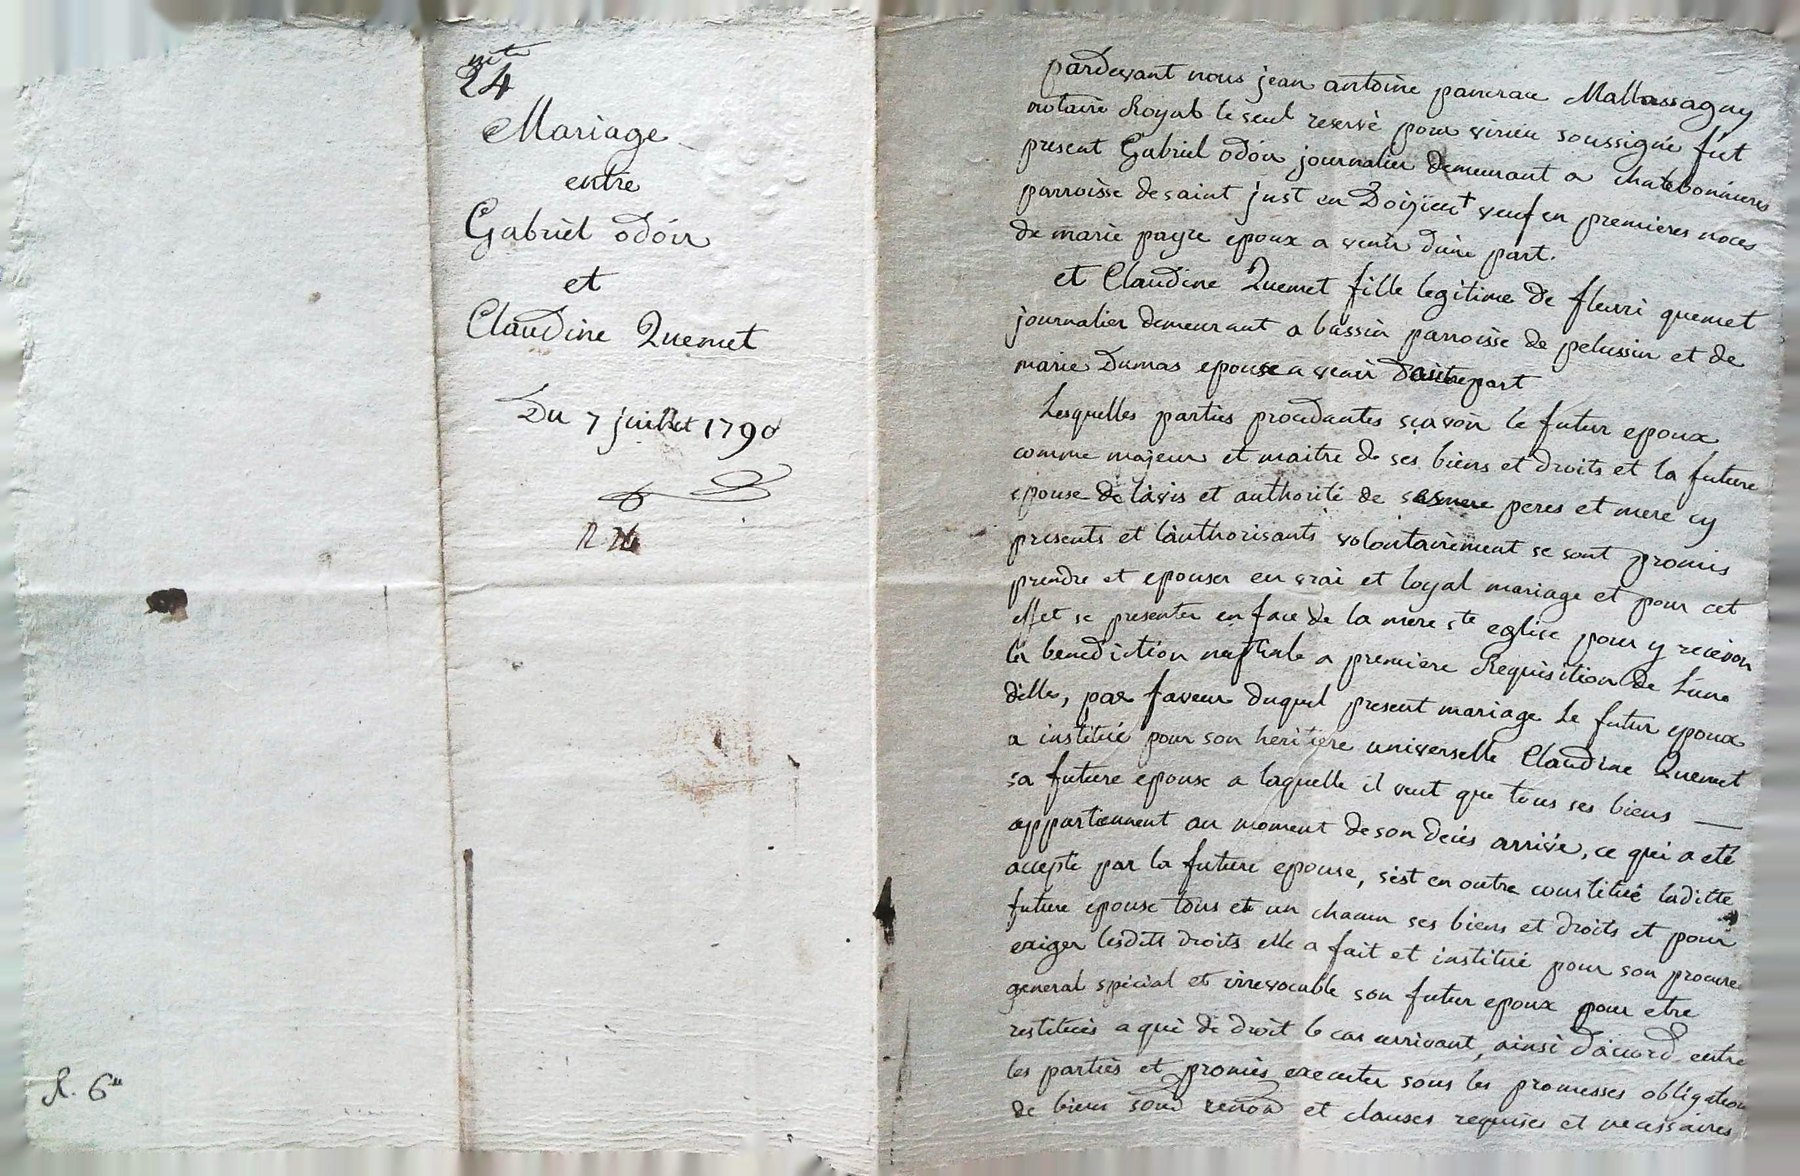 mte
24
Mariage
entre
Gabriel odoir
et
Claudine Quemet
Du 7 juillet 1790
R. 6lt
pardevant nous jean antoine pancrace Mallassagny
notaire Royal le seul reservé pour virieu soussigné fut
present Gabriel odoir journalier demeurant a chatebonnieres
parroisse de saint just en Doizieut veuf en premieres noces
de marie payre epoux a venir d'une part.
et Claudine Quemet fille legitime de fleuri quemet
journalier demeurant a bassin parroisse de pelussin et de
marie Dumas epouse a venir d'autre part
Lesquelles parties procedantes sçavoir le futur epoux
comme majeur et maitre de ses biens et droits et la future
epouse de l'avis et authorité de ses peres et mere cy
presents et l'authorisants volontairement se sont promis
prendre et epouser en vrai et loyal mariage et pour cet
effet se presenter en face de la mere ste eglise pour y recevoir
la benediction nuptiale a premiere Requisition de l'une
d'elles, par faveur duquel present mariage le futur epoux
a institué pour son heritiere universelle Claudine Quemet
sa future epouse a laquelle il veut que tous ses biens
appartiennent au moment de son decès arrivé, ce qui a eté
accepté par la future epouse, s'est en outre constitué laditte
future epouse tous et un chacun ses biens et droits et pour
exiger lesdits droits elle a fait et institué pour son procureur
general special et irrevocable son futur epoux pour etre
restitués a qui de droit le cas arrivant, ainsi d'accord entre
les parties et promis executer sous les promesses obligation
de biens soud renon et clauses requises et necessaires